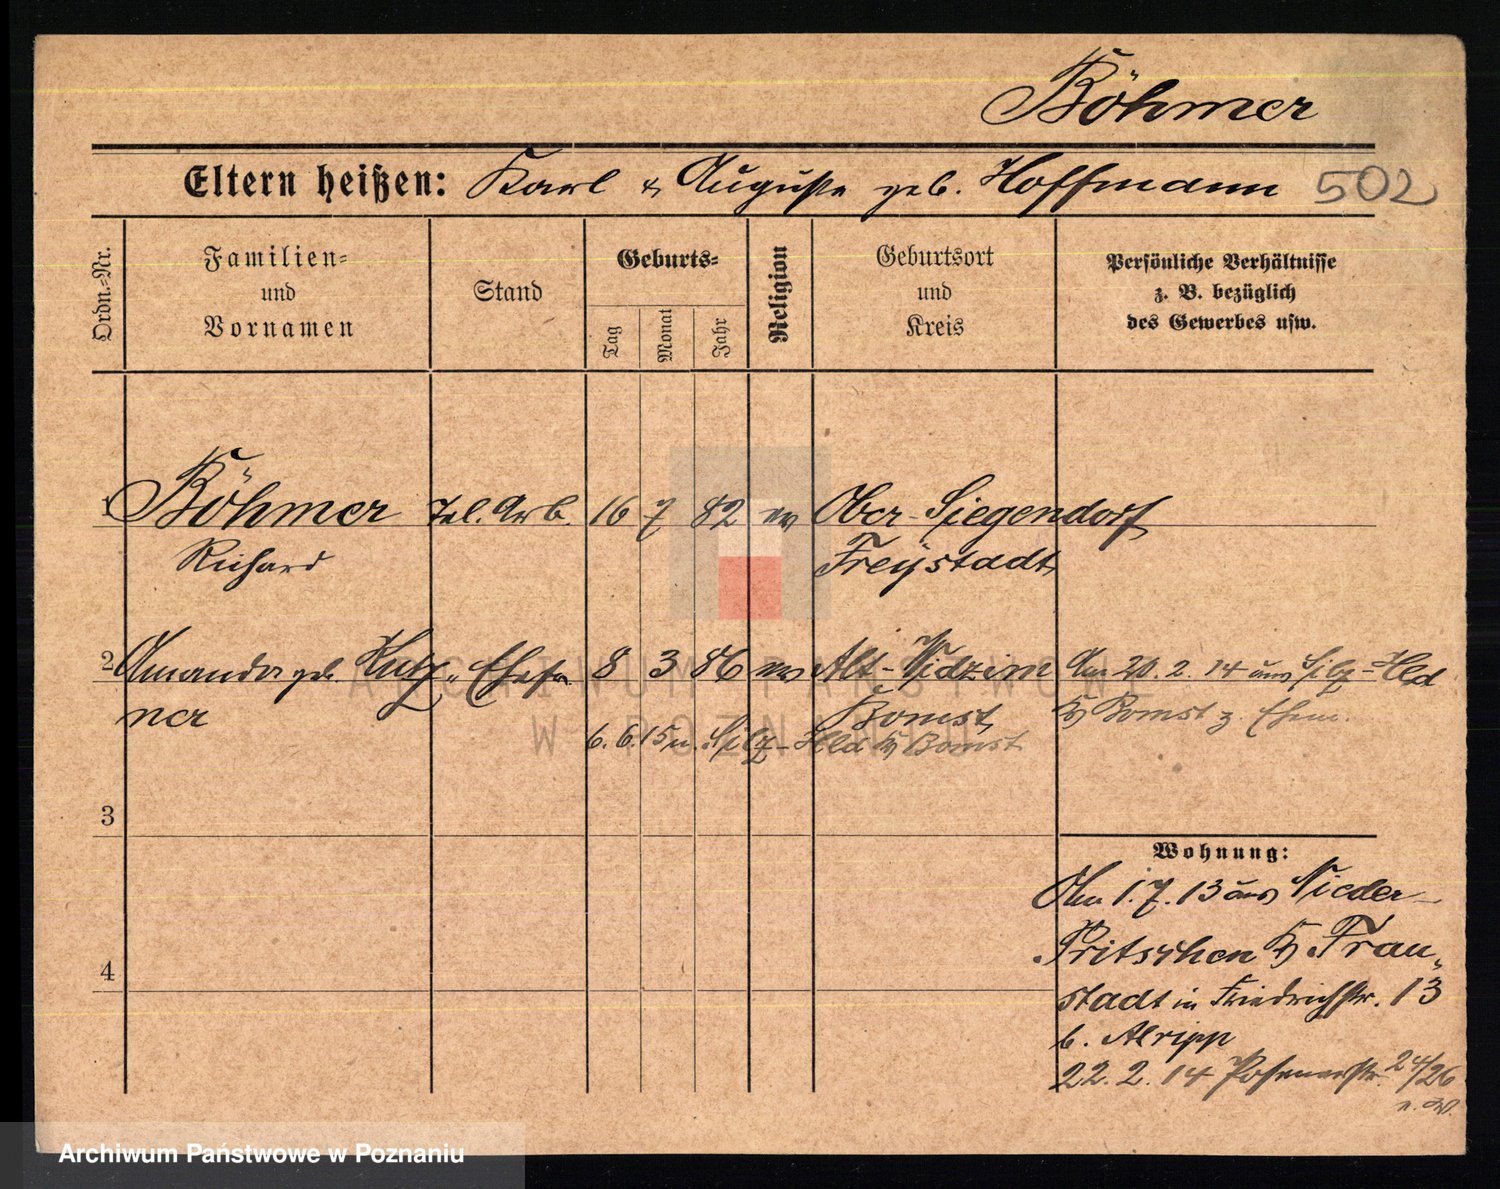 Böhmer
Eltern heißen: Karl & Auguste geb. Hoffmann 502
Ordn.-Nr.
Familien-
und
Vornamen
Stand
Geburts-
Tag
Monat
Jahr
Religion
Geburtsort
und
Kreis
Persönliche Verhältnisse
z. B. bezüglich
des Gewerbes usw.
1 Böhmer Tel. Arb. 16 7 82 ev Ober-Siegendorf
Richard Freÿstadt
2 Amanda geb. Kutz- Ehefr. 8 3 86 ev Alt-Widzim Am 20. 2. 14 aus Silz-Hld
ner Bomst Kr Bomst z. Ehem.
6. 6. 15 n. Silz-Hld Kr Bomst
3
Wohnung:
Am 1. 7. 13 aus Nieder-
Pritschen Kr Frau-
4
stadt in Friedrichstr. 13
b.
22. 2. 14 Posenerstr. 24/26
ARCHIWUM PAŃSTWOWE
W POZNANIU
Archiwum Państwowe w Poznaniu